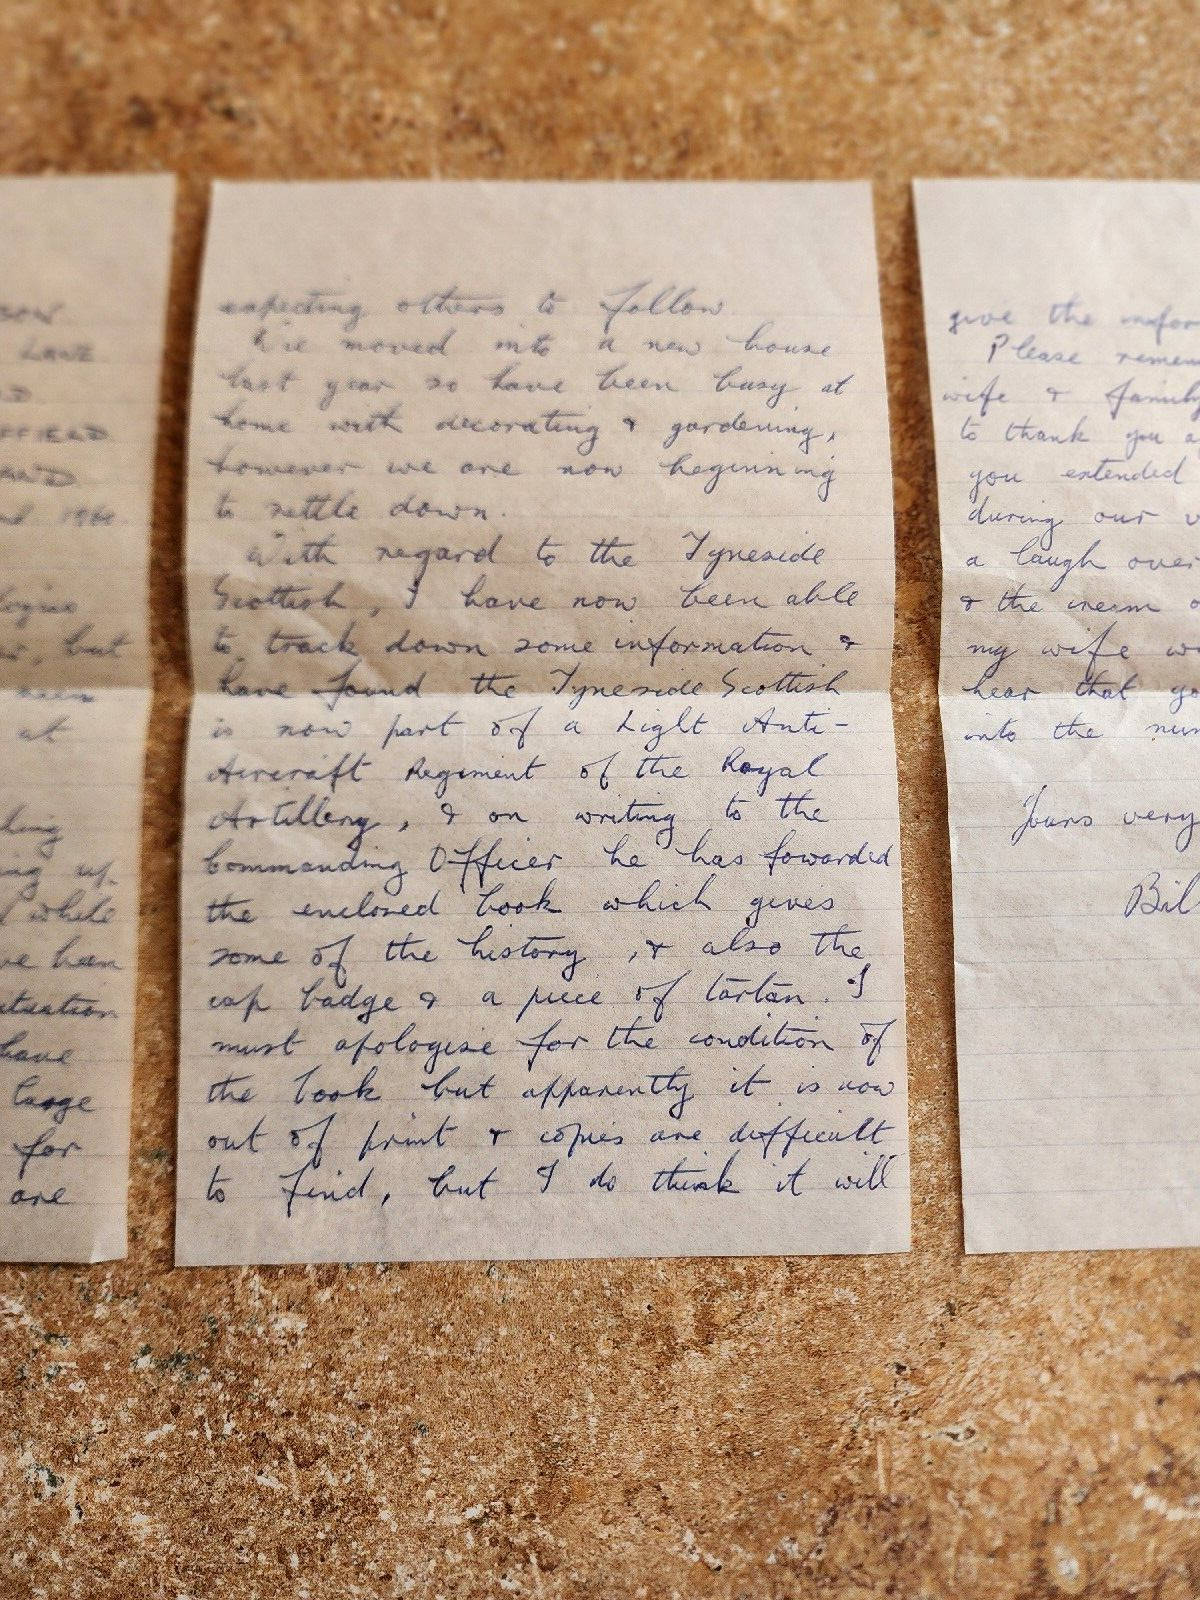 LANE
FFIELD
but
at
while
have
large
for
are
expecting others to follow.
We moved into a new house
last year so have been busy at
home with decorating & gardening,
however we are now beginning
to settle down.
With regard to the Tyneside
Scottish, I have now been able
to track down some information &
have found the Tyneside Scottish
is now part of a Light Anti-
Aircraft Regiment of the Royal
Artillery, & on writing to the
Commanding Officer he has fowarded
the enclosed book which gives
some of the history, & also the
cap badge & a piece of tartan. I
must apologise for the condition of
the book but apparently it is now
out of print & copies are difficult
to find, but I do think it will
give the infor
Please remem
wife & family
to thank you a
you extended
during our v
a laugh over
& the cream o
my wife wo
hear that yo
into the nur
Yours very
Bil